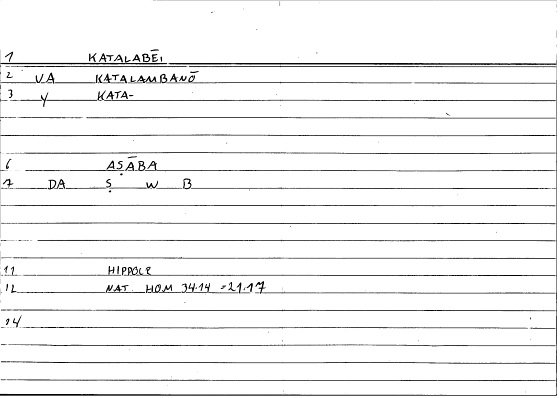 1 KATALABĒI
2 VA KATALAMBANŌ
3 Y KATA-
6 AṢĀBA
7 DA Ṣ W B
11 HIPPOCR
12 NAT. HOM 34.14 = 21.17
14